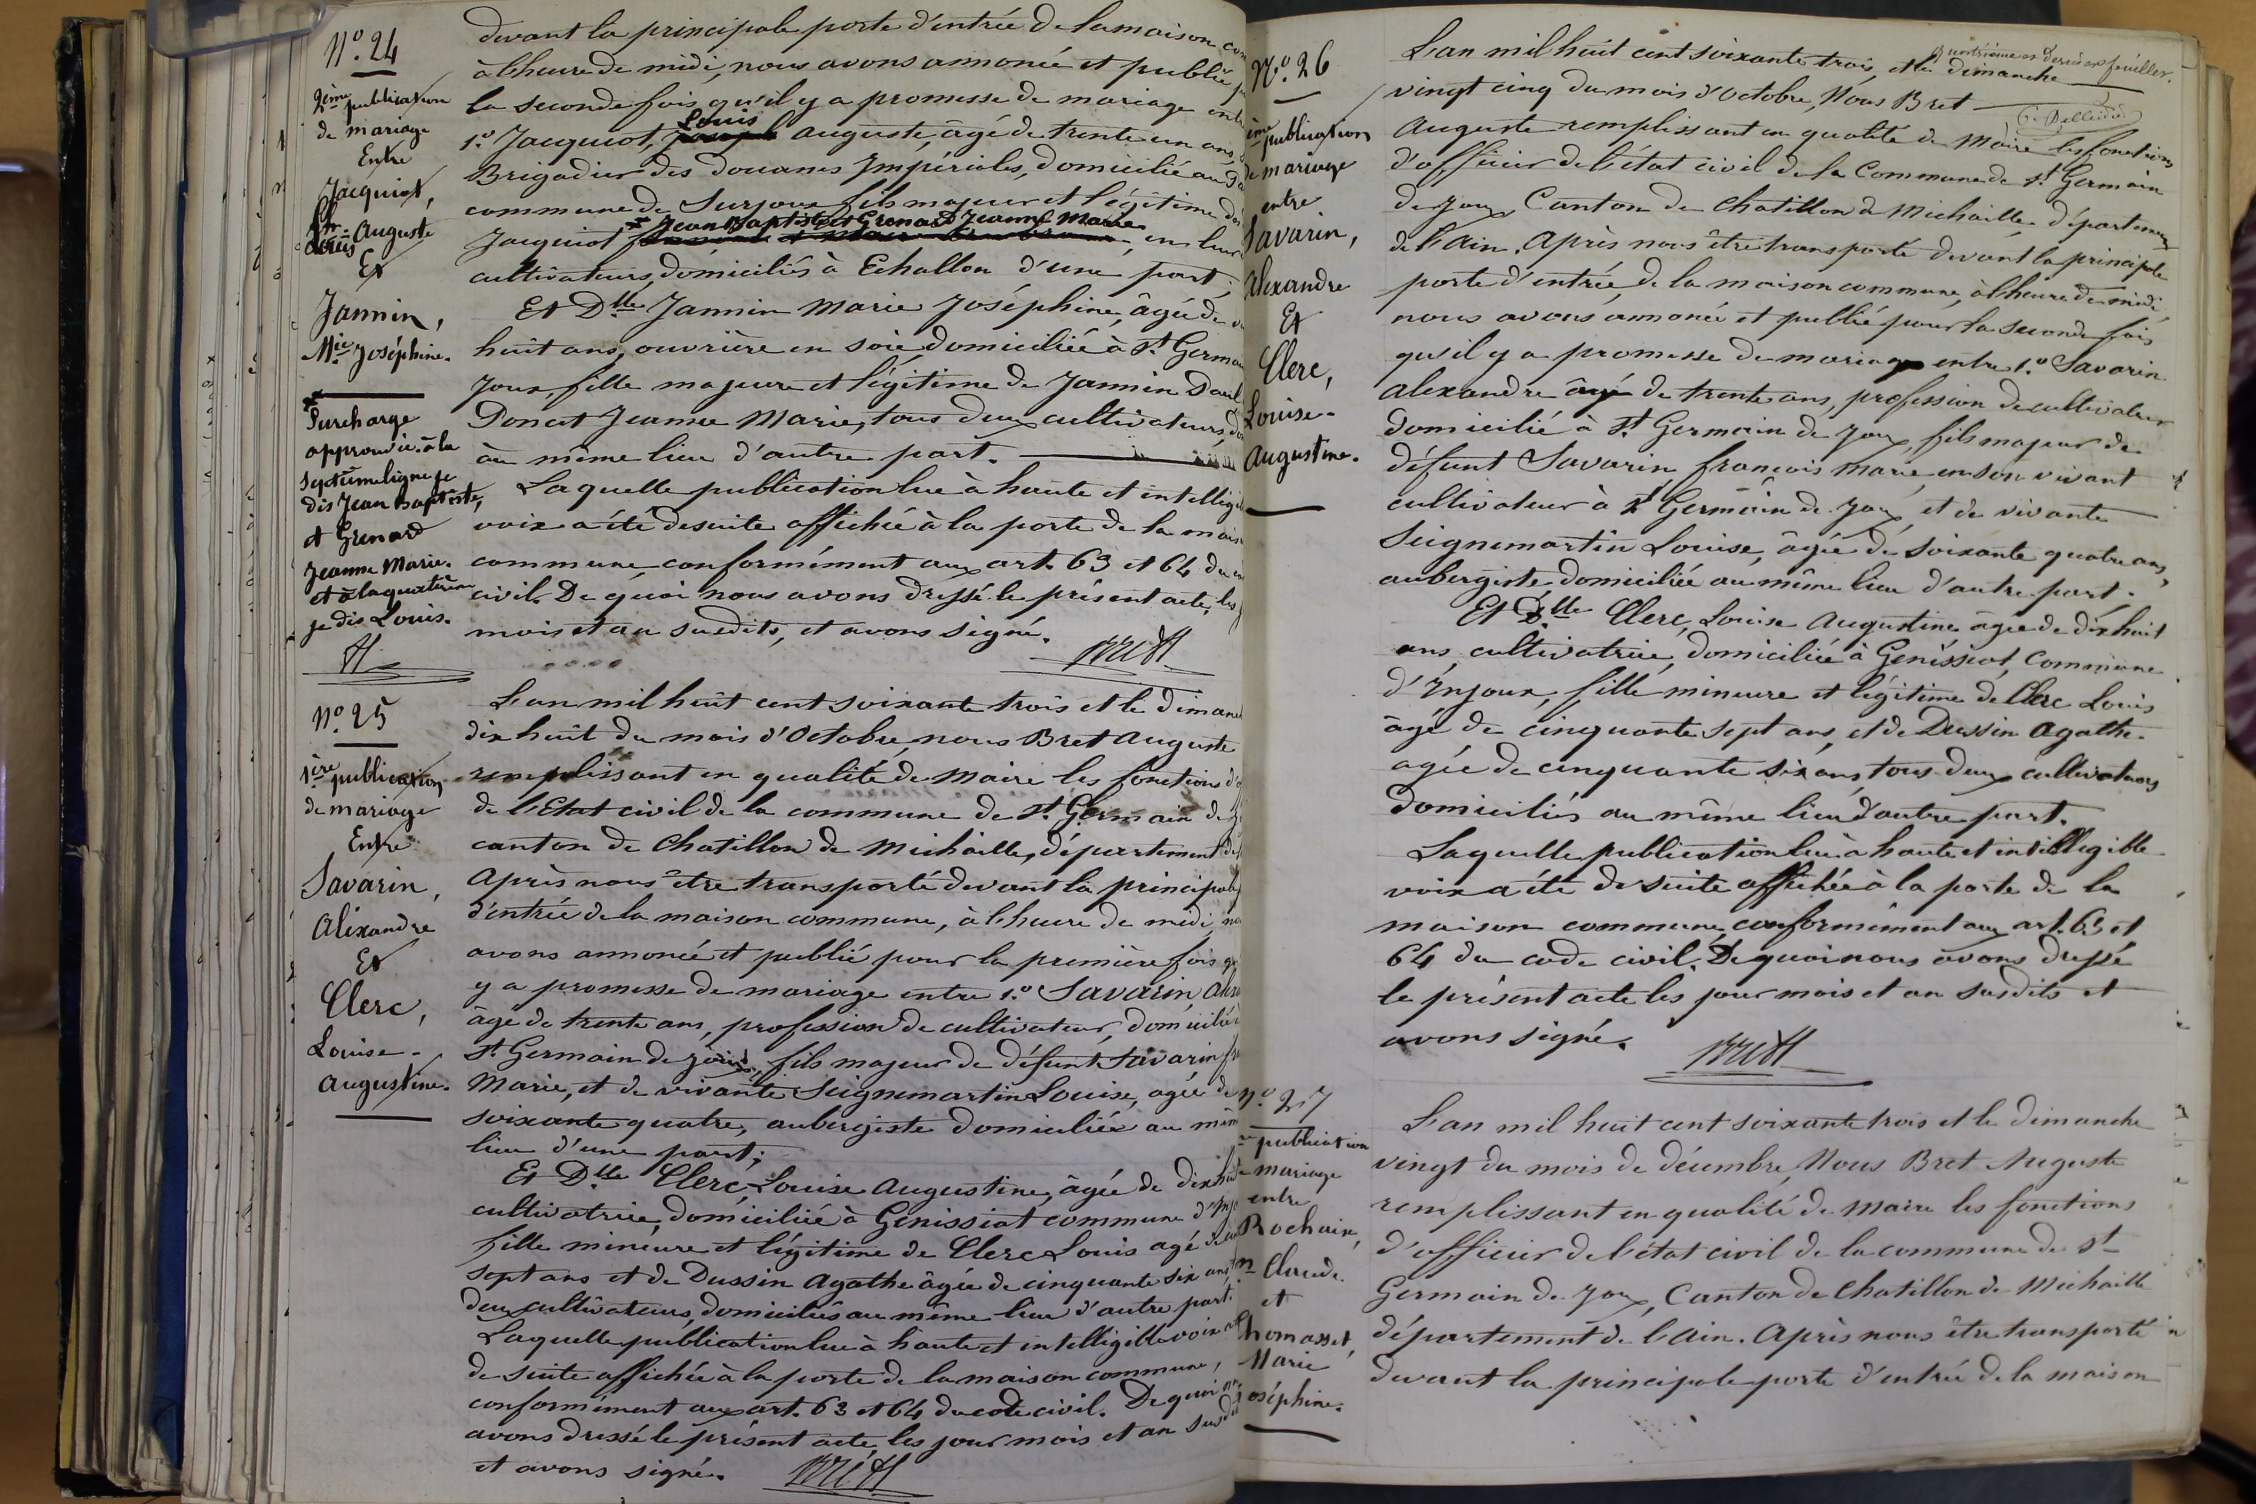 N.° 24
2ème publication
de mariage
Entre
Jacquiot,
Louis Auguste
Et
Jannin,
Mie Joséphine.
Surcharge
approuvée à la
septième ligne je
dis Jean Baptiste,
et Grenard
Jeanne Marie.
et à la quatrième
je dis Louis.
devant la principale porte d'entrée de la maison com
à l'heure de midi, nous avons annoncé et publié p
la seconde fois qu'il y a promesse de mariage entr
1.° Jacquiot, Louis auguste, âgé de trente un ans,
Brigadier des douanes Impériales, domicilié au
commune de Surjoux fils majeur et légitime de
x Jean Baptiste et Grenard Jeanne Marie
Jacquiot en leur
cultivateurs, domiciliés à Echallon d'une part;
Et Dlle Jannin Marie Joséphine, âgée de
huit ans, ouvrière en soie domiciliée à St Germain
Joux, fille majeure et légitime de Jannin Paul
Poncet Jeanne Marie, tous deux cultivateurs, do
au même lieu d'autre part.
Laquelle publication lue à haute et intelligib
voix a été de suite affichée à la porte de la mais
commune conformément aux art. 63 et 64 du co
civil. De quoi nous avons dressé le présent acte, les j
mois et an susdits, et avons signé.
Bret
N.° 25
1ère publication
de mariage
Entre
Savarin,
Aléxandre
Et
Clerc,
Louise-
Augustine.
L'an mil huit cent soixante trois et le dimanch
dix huit du mois d'Octobre, nous Bret Auguste
remplissant en qualité de Maire les fonctions d'o
de l'Etat civil de la commune de St. Germain de
canton de Chatillon de Michaille, département de
Après nous être transporté devant la principale
d'entrée de la maison commune, à l'heure de midi, no
avons annoncé et publié pour la première fois qu
y a promesse de mariage entre 1.° Savarin, Alex
âgé de trente ans, profession de cultivateur, domicilié
St. Germain de Joux, fils majeur de défunt Savarin fra
Marie, et de vivante Seignemartin Louise, agée de
soixante quatre, aubergiste domiciliée au même
lieu d'une part;
Et Dlle Clerc, Louise Augustine, âgée de dix huit
cultivatrice, domiciliée à Génissiat commune d'Inj
fille mineure et légitime de Clerc Louis agé de
sept ans et de Dussin Agathe âgée de cinquante six ans,
deux cultivateurs, domiciliés au même lieu d'autre part.
Laquelle publication lue à haute et intelligible voix a
de suite affichée à la porte de la maison commune,
conformément aux art. 63 et 64 du code civil. De quoi no
avons dressé le présent acte, les jour mois et an susdi
et avons signé. Bret
N.° 26
ème publication
de mariage
entre
Savarin,
Alexandre
Et
Clerc,
Louise-
Augustine.
et dernier feuillet.
L'an mil huit cent soixante trois, et le dimanche
vingt cinq du mois d'Octobre, Nous Bret
Auguste remplissant en qualité de Maire les fonctions
d'officier de l'état civil de la Commune de St Germain
de Joux, Canton de Chatillon de Michaille département
de l'Ain. Après nous être transporté devant la principale
porte d'entrée, de la maison commune, à l'heure de midi
nous avons annoncé et publié pour la seconde fois
qu'il y a promesse de mariage entre 1.° Savarin
Alexandre âgé de trente ans, profession de cultivateur
domicilié à St Germain de Joux, fils majeur de
défunt Savarin, françois marie, en son vivant
cultivateur à St Germain de Joux, et de vivante
Seignemartin Louise, âgée de soixante quatre ans,
aubergiste domiciliée au même lieu d'autre part.
Et Dlle Clerc, Louise Augustine âgée de dix huit
ans, cultivatrice, domiciliée à Génissiat, Commune
d'Injoux, fille mineure et légitime de Clerc Louis
âgé de cinquante sept ans, et de Dussin Agathe
agée de cinquante six ans, tous deux cultivateurs
domiciliés au même lieu d'autre part.
Laquelle publication lue à haute et intelligible
voix a été de suite affichée à la porte de la
maison commune, conformément aux art. 63 et
64 du code civil. De quoi nous avons dressé
le présent acte les jour mois et an susdits et
avons signé.
Bret
N.° 27
publication
de mariage
entre
Rochaix,
Claude
et
Thomasset,
Marie
Joséphine.
L'an mil huit cent soixante trois et le dimanche
vingt du mois de décembre, Nous Bret Auguste
remplissant en qualité de Maire les fonctions
d'officier de l'état civil de la commune de St
Germain de Joux, Canton de Chatillon de Michaille
département de l'Ain. Après nous être transporté
devant la principale porte d'entrée de la maison